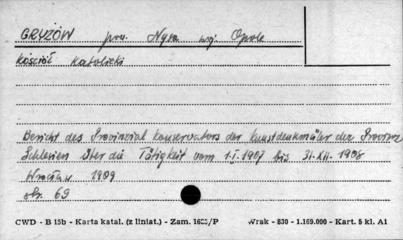 GRYZÓW pow. Nysa woj. Opole
kościół katolicki
Bericht des Provinzial konservators der kunstdenkmäler der Provinz
Schlesien über die Tätigkeit vom 1.I.1907 bis 31.XII.1908
Wrocław 1909
str. 69
CWD - B 15b - Karta katal. (z liniat.) - Zam. 1623/P Wrak - 830 - 1.169.000 - Kart. 5 kl. A1